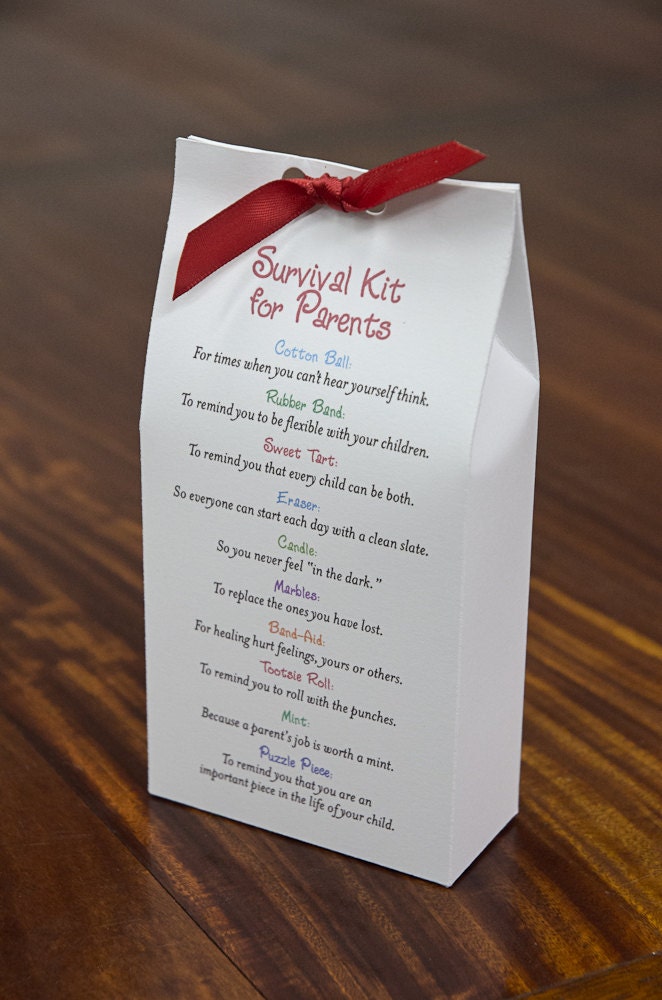 Survival Kit
for Parents
Cotton Ball:
For times when you can't hear yourself think.
Rubber Band:
To remind you to be flexible with your children.
Sweet Tart:
To remind you that every child can be both.
Eraser:
So everyone can start each day with a clean slate.
Candle:
So you never feel "in the dark."
Marbles:
To replace the ones you have lost.
Band-Aid:
For healing hurt feelings, yours or others.
Tootsie Roll:
To remind you to roll with the punches.
Mint:
Because a parent's job is worth a mint.
Puzzle Piece:
To remind you that you are an
important piece in the life of your child.